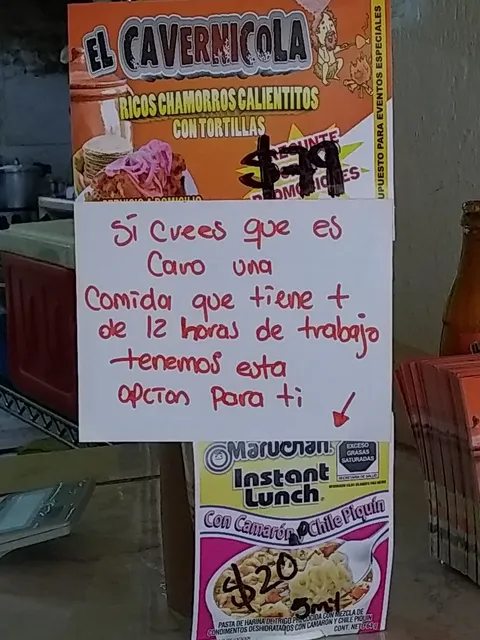 EL CAVERNICOLA
RICOS CHAMORROS CALIENTITOS
CON TORTILLAS
PREGUNTE
$79
PROMOSIONES
SERVICIO A DOMICILIO
PUPUESTO PARA EVENTOS ESPECIALES
Si Crees que es
Caro una
Comida que tiene +
de 12 horas de trabajo
tenemos esta
opcion para ti
Maruchan
Instant
Lunch
EXCESO
GRASAS
SATURADAS
SECRETARÍA DE SALUD
Con Camarón y Chile Piquín
$20
5min
PASTA DE HARINA DE TRIGO PRECOCIDA CON MEZCLA DE
CONDIMENTOS DESHIDRATADOS CON CAMARÓN Y CHILE PIQUÍN
CONT. 64 g